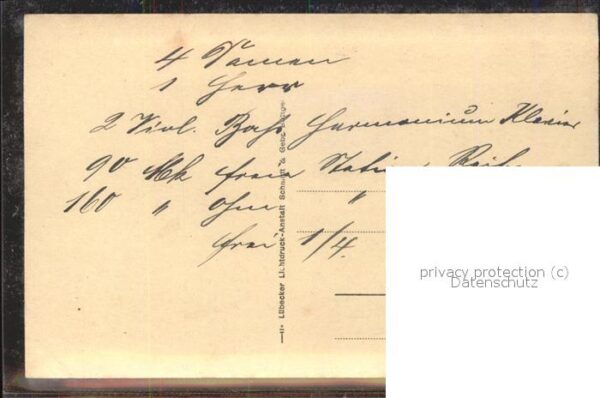 4 Damen
1 Herr
2 Viol. Bass Harmonium Klavier
90 Mk freie Station
160 " ohne "
frei 1/4.
Lübecker Lichtdruck-Anstalt Schmidt & Gebr.
privacy protection (c)
Datenschutz